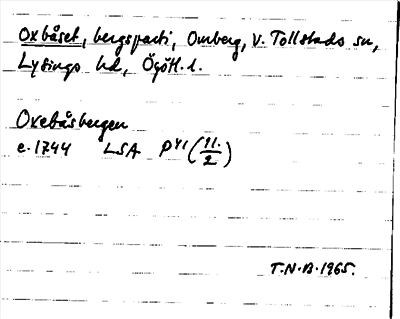 Oxbåset, bergsparti, Omberg, V. Tollstads sn,
Lysings hd, Ögötl. l.
Oxebåsbergen
e. 1744 LSA P41 (11./2)
T.N.B. 1965.